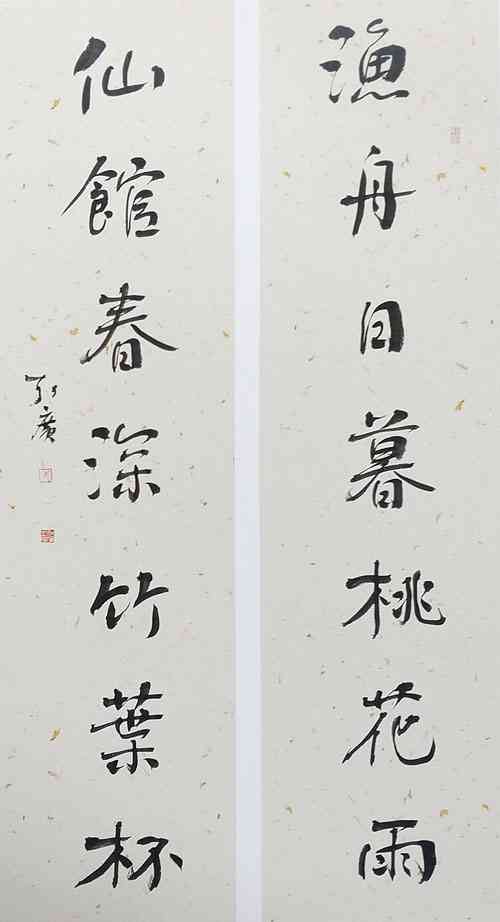 渔舟日暮桃花雨
仙館春深竹葉杯
廣